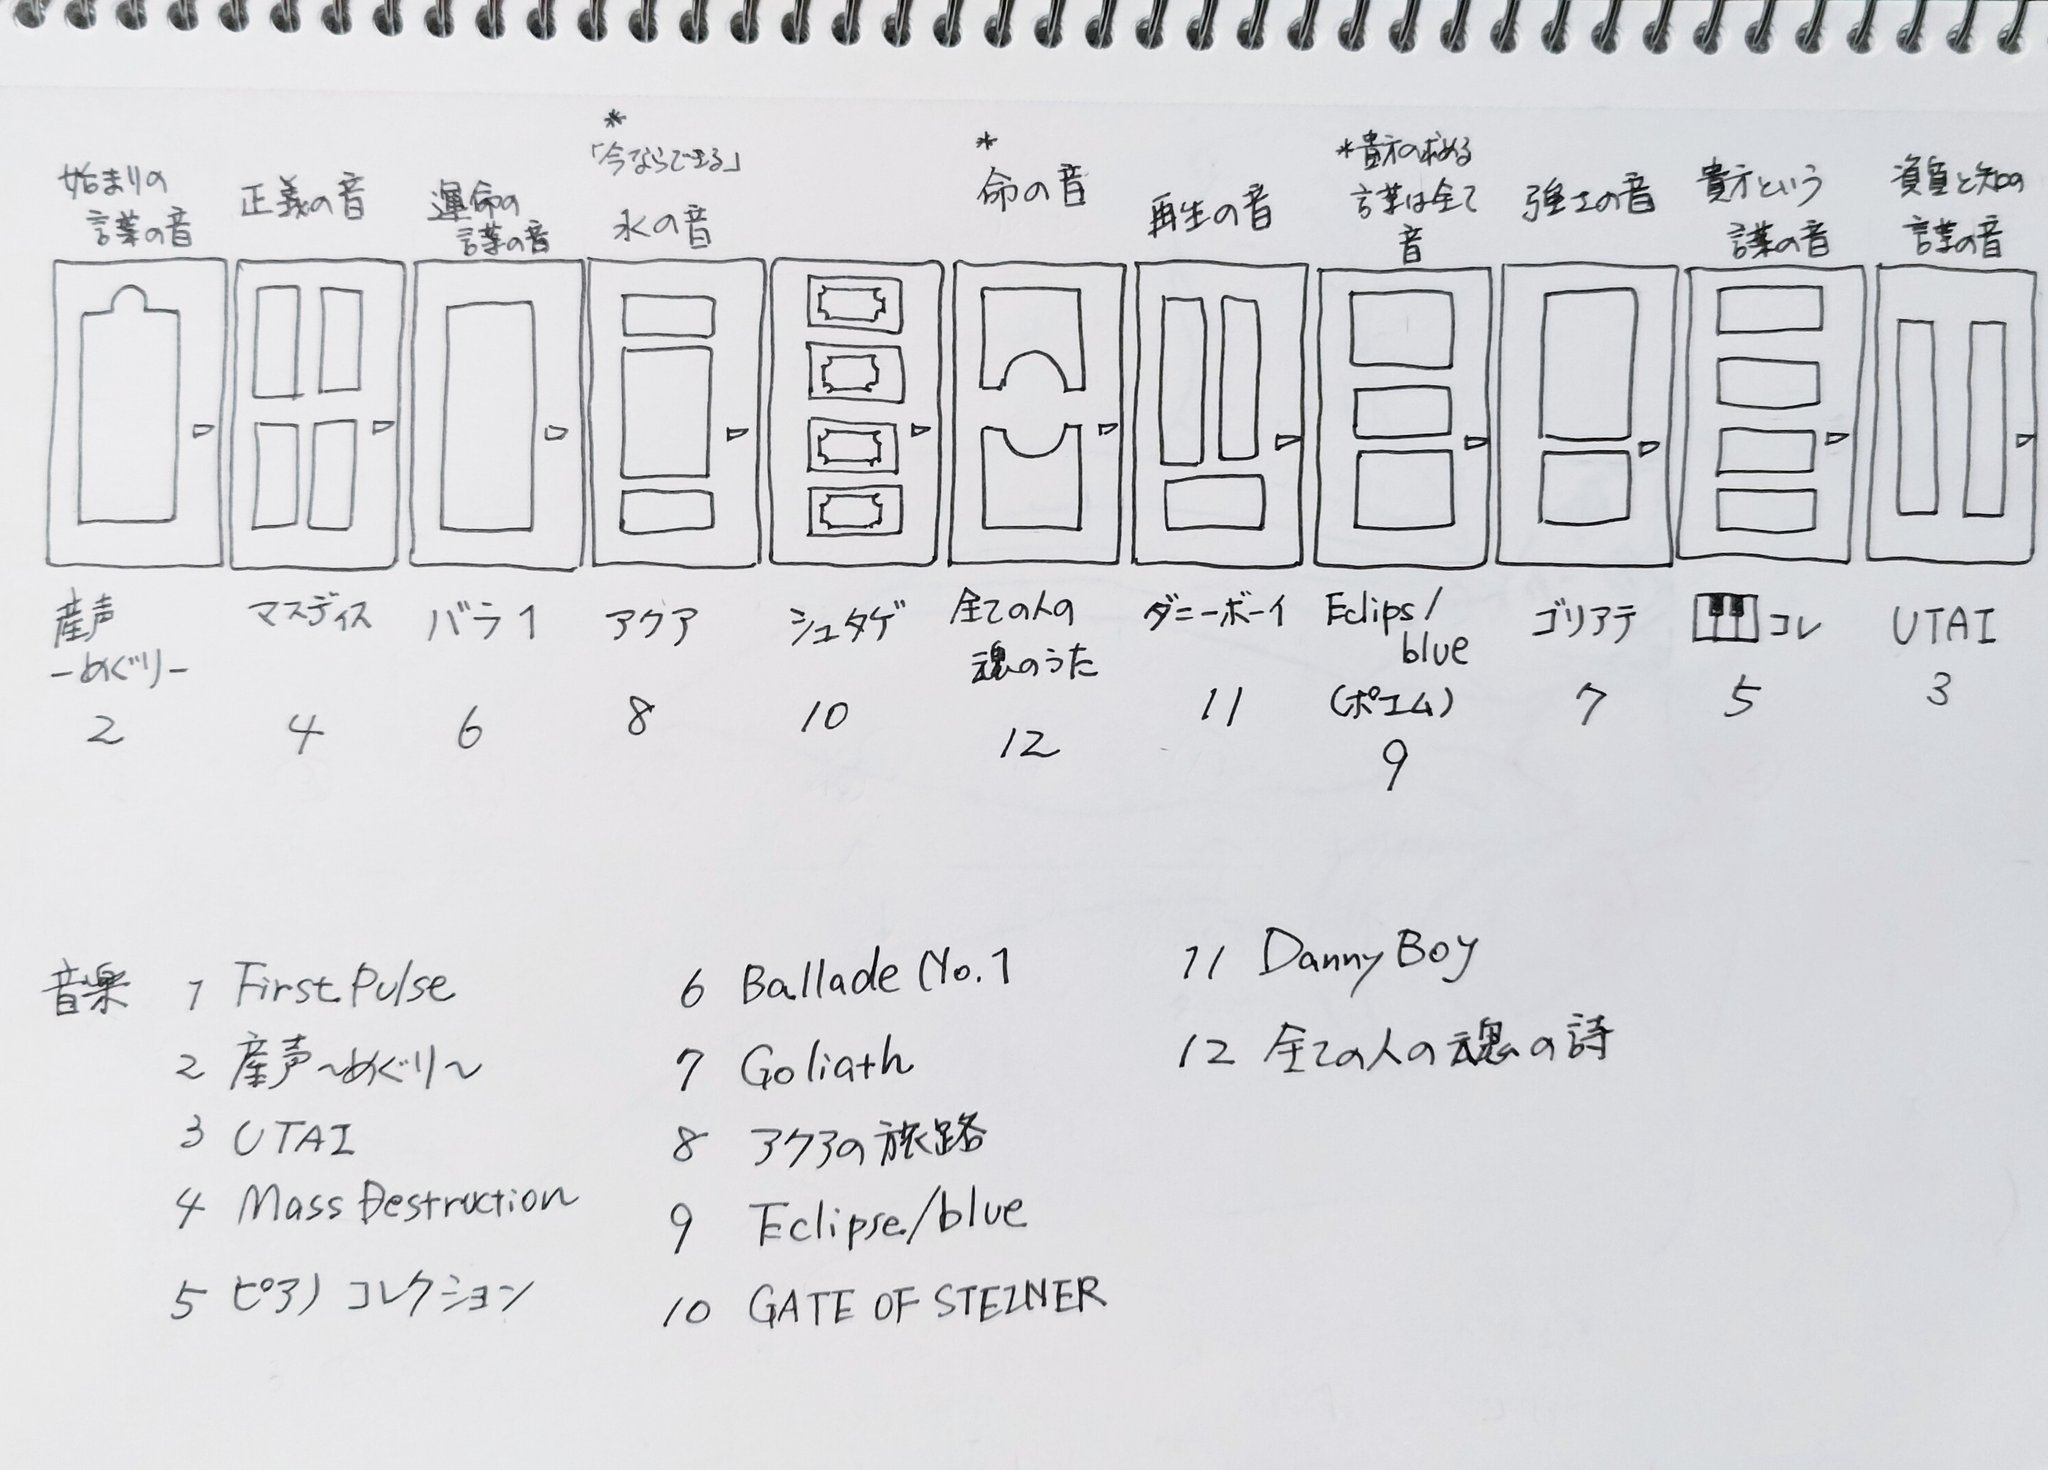 始まりの
言葉の音
正義の音
運命の
言葉の音
*
「今ならできる」
水の音
*
命の音
再生の音
*貴方の求める
言葉は全て
音
強士の音
貴方という
言葉の音
負と知の
言葉の音
産声
-めぐり-
2
マスディス
4
バラ1
6
アクア
8
シュタゲ
10
全ての人の
魂のうた
12
ダニーボーイ
11
Eclips/
blue
(ポエム)
9
ゴリアテ
7
コレ
5
UTAI
3
音楽
1 First Pulse
2 産声〜めぐり〜
3 UTAI
4 Mass Destruction
5 ピアノ コレクション
6 Ballade No.1
7 Goliath
8 アクアの旅路
9 Eclipse/blue
10 GATE OF STEINER
11 Danny Boy
12 全ての人の魂の詩